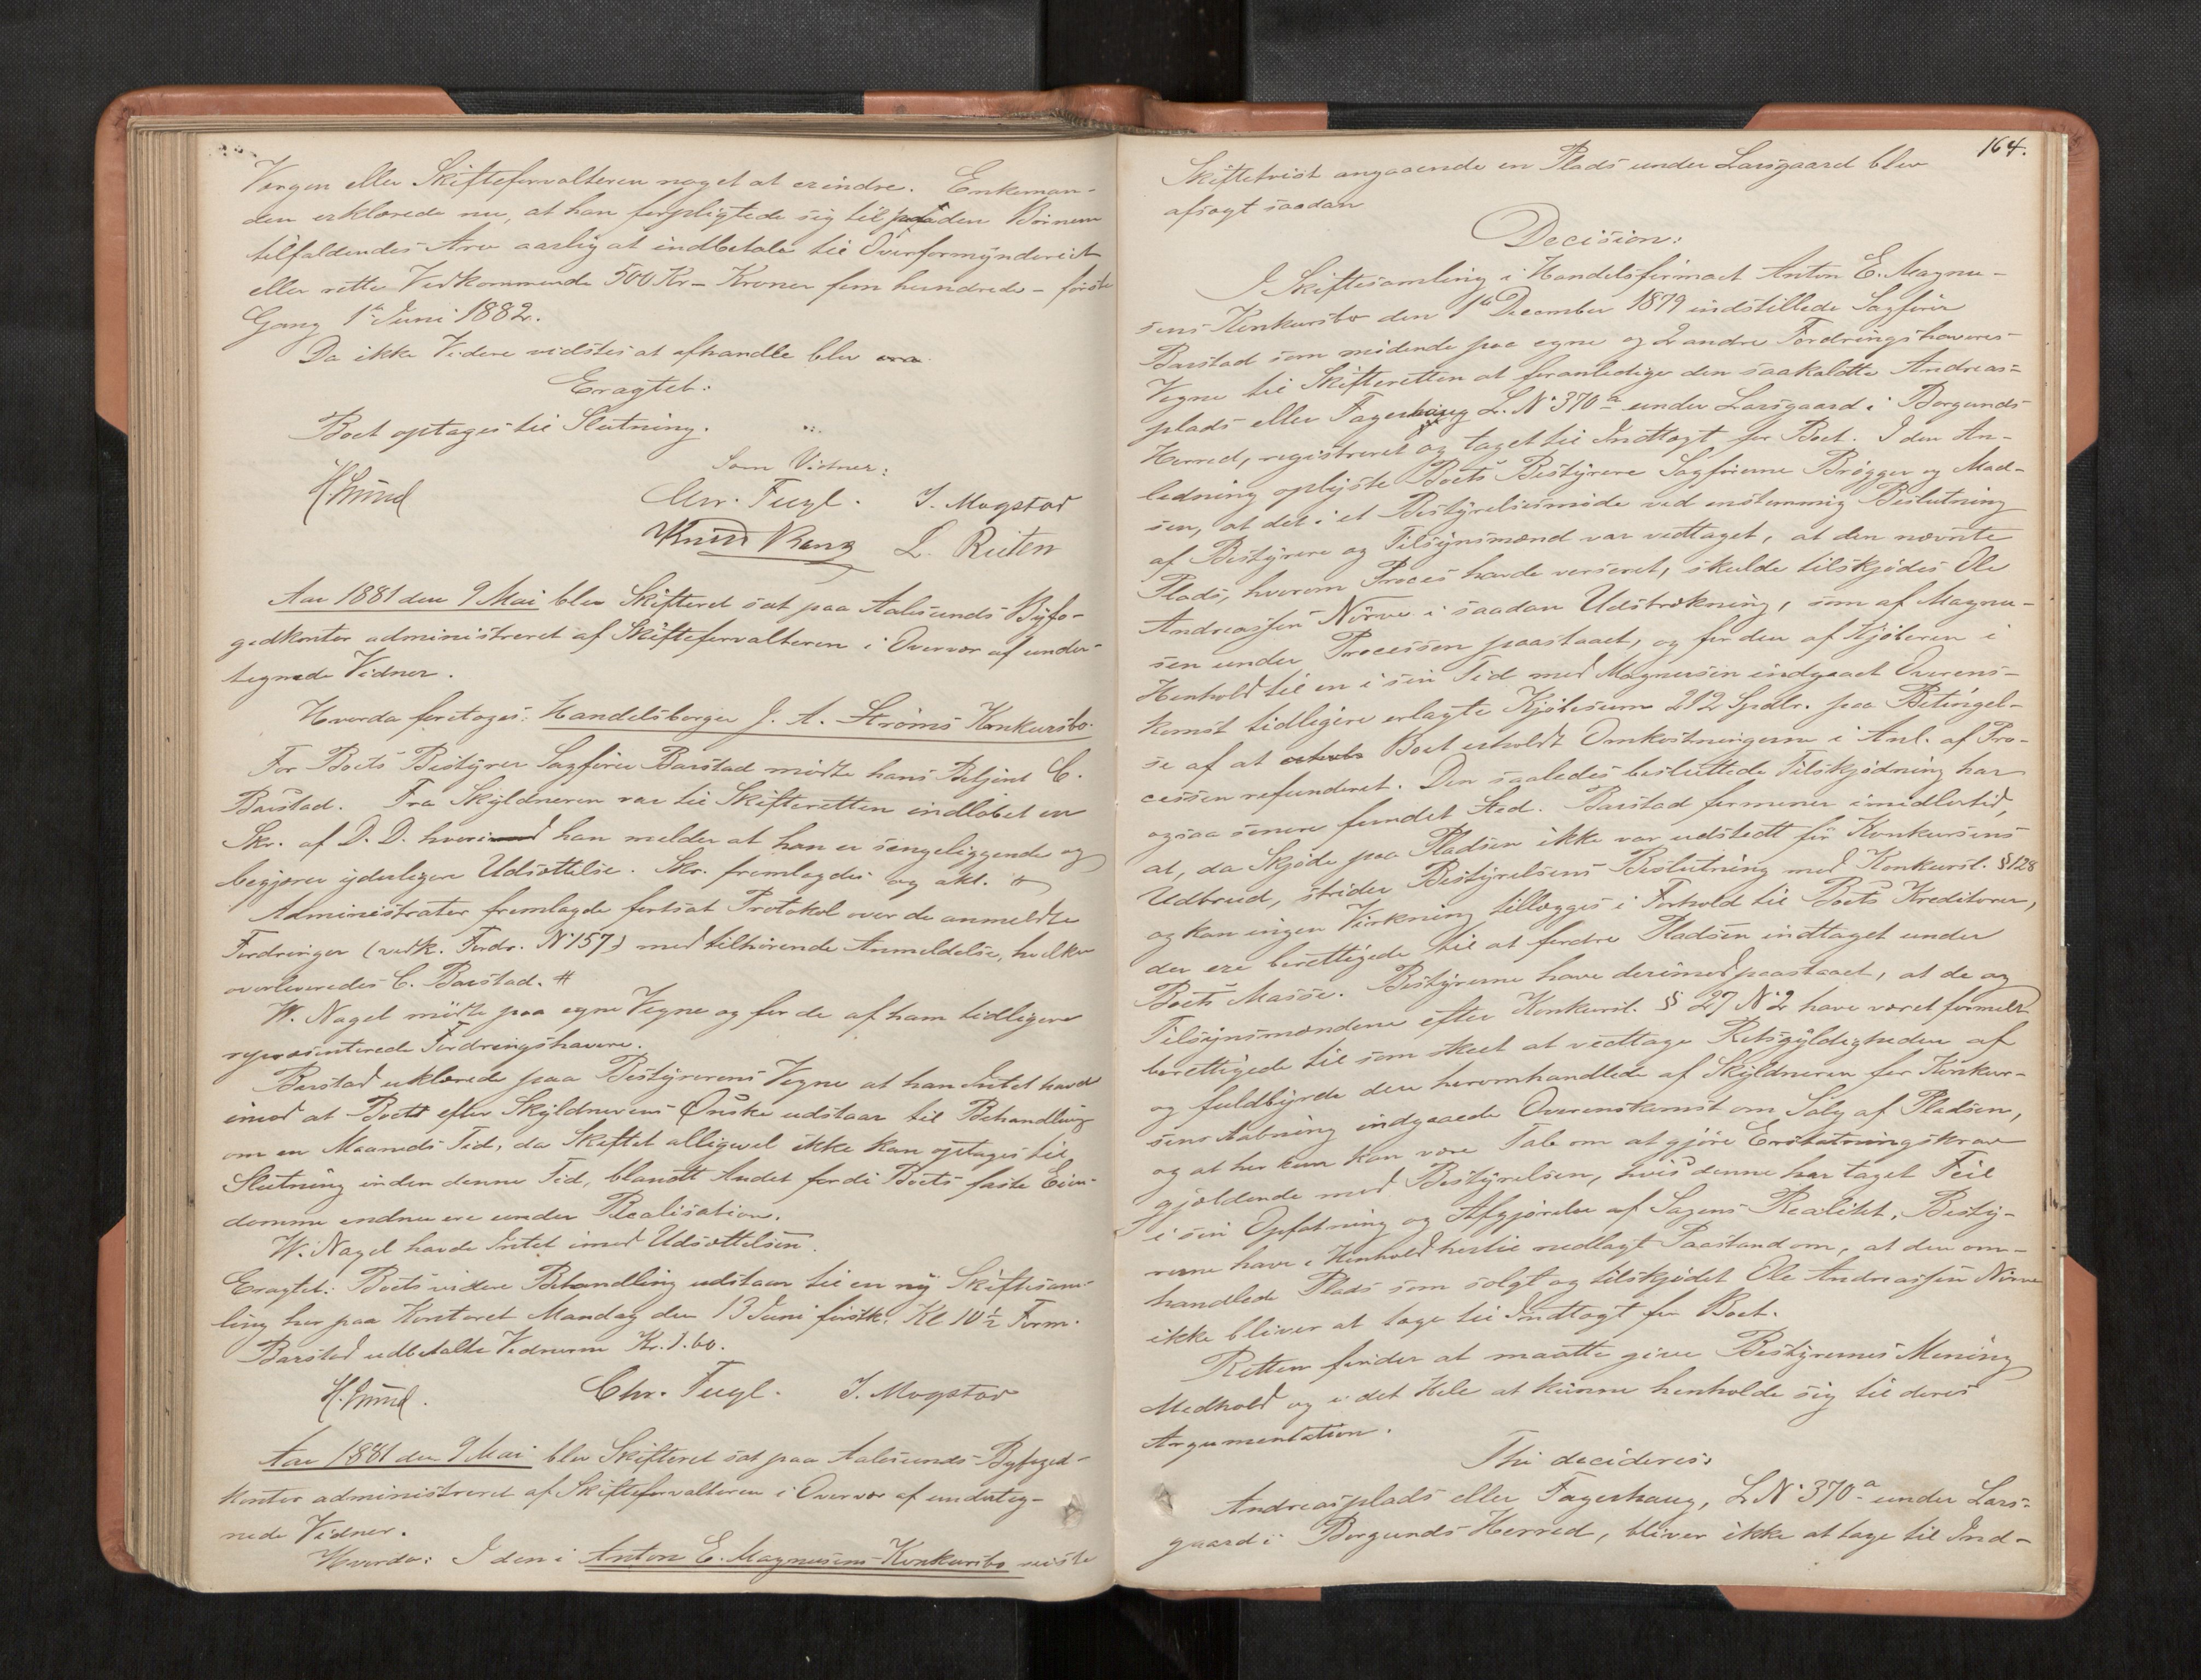 Værgen eller Skifteforvalteren noget at erindre. Enkeman-
den erklærede nu, at han forpligtede sig til paa den Börnene
tilfaldendes Arv aarlig at indbetale til Overformynderiet
eller rette Vedkommende 500 Kr - Kroner fem hundrede - første
Gang 1ste Juni 1882.
Da ikke Videre vidstes at afhandle blev
Eragtet:
Boet optages til Slutning.
Som Vidner:
Chr. Fugl. J. Mogstad
L. Rieten
Aar 1881 den 9 Mai blev Skifteret sat paa Aalesunds Byfo-
gedkontor administreret af Skifteforvalteren i Overvær af under-
tegnede Vidner.
Hvorda foretoges: Handelsborger J. A. Strøms Konkursbo.
For Boets Bestyrer Sagfører Barstad mødte hans Betjent C.
Barstad. Fra Skyldneren var til Skifteretten indløbet en
Skr. af D. D. hvori han melder at han er sengeliggende og
begjærer yderligere Udsættelse. Skr. fremlagdes og akt.
Administrator fremlagde fortsat Protokol over de anmeldte
Fordringer (vedk. Fordr. No 157) med tilhørende Anmeldelse, hvilke
overleveredes C. Barstad. #
W. Nagel mødte paa egne Vegne og for de af ham tidligere
repræsenterede Fordringshavere.
Barstad erklærede paa Bestyrerens Vegne at han Intet havde
imod at Boet efter Skyldnerens Ønske udstaar til Behandling
om en Maaneds Tid, da Skiftet alligevel ikke kan optages til
Slutning inden denne Tid, blandt Andet fordi Boets faste Eien-
domme endnu ere under Realisation.
W. Nagel havde Intet imod Udsættelsen.
Eragtet: Boets videre Behandling udstaar til en ny Skiftesam-
ling her paa Kontoret Mandag den 13 Juni førstk. Kl 10½ Form.
Barstad udbetalte Vidnerne Kr. 1.60.
Chr. Fugl. J. Mogstad
Aar 1881 den 9 Mai blev Skifteret sat paa Aalesunds Byfoged-
kontor administreret af Skifteforvalteren i Overvær af underteg-
nede Vidner.
Hvorda: I den i Anton E. Magnusens Konkursbo reiste
164.
Skiftetvist angaaende en Plads under Larsgaard blev
afsagt saadan
Decision:
I Skiftesamling i Handelsfirmaet Anton E. Magnu-
sens Konkursbo den 1ste December 1879 indstillede Sagfører
Barstad som mødende paa egne og 2 andre Fordringshaveres
Vegne til Skifteretten at foranledige den saakaldte Andreas-
plads eller Fagerhaug L. No 370a under Larsgaard i Borgunds
Herred, registreret og taget til Indtægt for Boet. I den An-
ledning oplyste Boets Bestyrere Sagførerne Brøgger og Mad-
sen, at det i et Bestyrelsesmøde ved enstemmig Beslutning
af Bestyrere og Tilsynsmænd var vedtaget, at den nævnte
Plads, hvorom Proces havde verseret, skulde tilskjødes Ole
Andreassen Nørve i saadan Udstrækning, som af Magnu-
sen under Processen paastaaet, og for den af Kjøberen i
Henhold til en i sin Tid med Magnusen indgaaet Overens-
komst tidligere erlagte Kjøbesum 212 Spdlr. paa Betingel-
se af at Boet erholdt Omkostningerne i Anl. af Pro-
cessen refunderet. Den saaledes besluttede Tilskjødning har
ogsaa senere fundet Sted. Barstad formener imidlertid,
at, da Skjøde paa Pladsen ikke var udstedt før Konkursens
Udbrud, strider Bestyrelsens Beslutning mod Konkursl. § 128
og kan ingen Virkning tillægges i Forhold til Boets Kreditorer,
der ere berettigede til at fordre Pladsen indtaget under
Boets Masse. Bestyrerne have derimod paastaaet, at de og
Tilsynsmændene efter Konkursl. § 27 No 2 have været formelt
berettigede til som skeet at vedtage Retsgyldigheden af
og fuldbyrde den heromhandlede af Skyldneren før Konkur-
sens Aabning indgaaede Overenskomst om Salg af Pladsen,
og at her kun kan være Tale om at gjøre Erstatningskrav
gjældende mod Bestyrelsen, hvis denne har taget Feil
i sin Opfatning og Afgjørelse af Sagens Realitet. Besty-
rerne have i Henhold hertil nedlagt Paastand om, at den om-
handlede Plads som solgt og tilskjødet Ole Andreassen Nørve
ikke bliver at tage til Indtægt for Boet.
Retten finder at maatte give Bestyrernes Mening
Medhold og i det Hele at kunne henholde sig til deres
Argumentation.
Thi decideres:
Andreasplads eller Fagerhaug, L. No 370a under Lars-
gaard i Borgunds Herred, bliver ikke at tage til Ind-